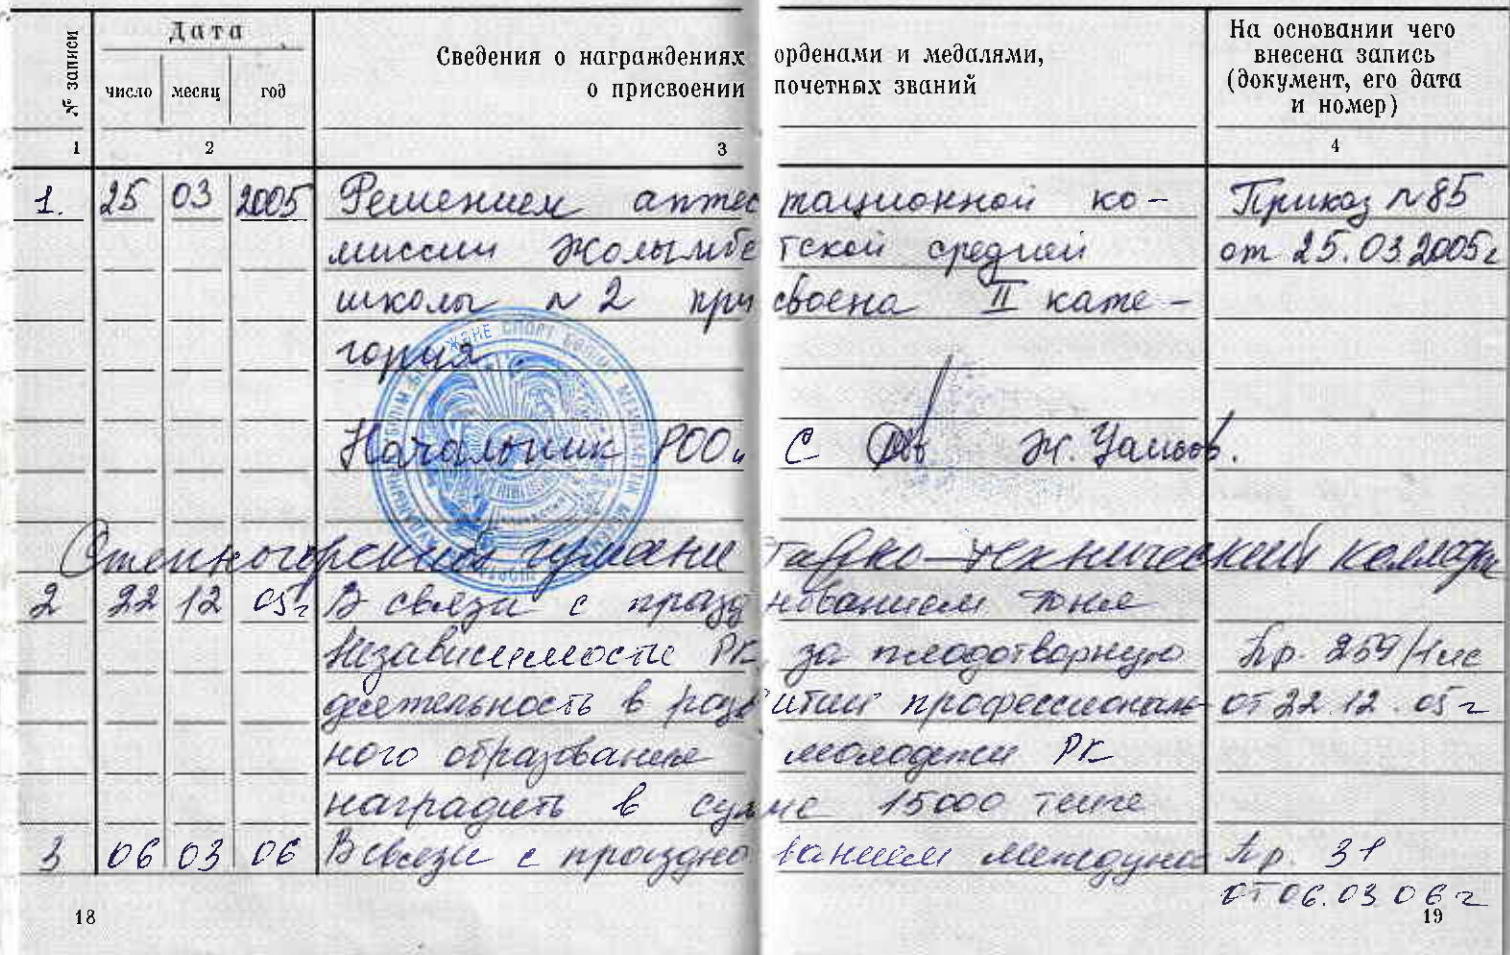 № записи
Дата
число месяц год
Сведения о награждениях орденами и медалями,
о присвоении почетных званий
На основании чего
внесена запись
(документ, его дата
и номер)
1 2 3 4
1. 25 03 2005 Решением аттестационной ко- Приказ №85
миссии Жолымбетской средней от 25.03.2005г
школы №2 присвоена II кате-
гория.
Начальник РОО и С Ж.
Степногорский гуманитарно-технический колледж
2 22 12 05г В связи с празднованием дня
Независимости РК, за плодотворную Пр. 259/
деятельность в развитии профессиональ- от 22.12.05г
ного образования молодежи РК
наградить в сумме 15000 тенге
3 06 03 06 В связи с празднованием междуна Пр. 31
от 06.03 06г
18 19